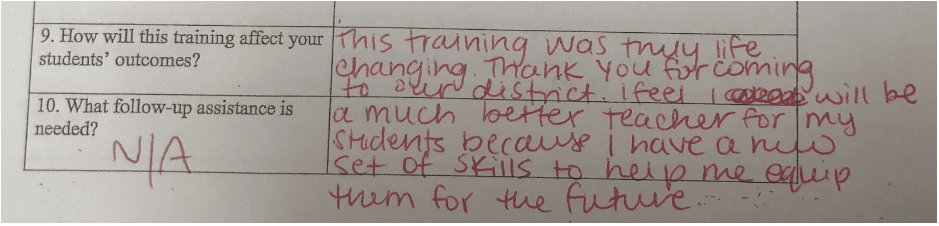 9. How will this training affect your students' outcomes?
This training was truly life
changing. Thank you for coming
to our district. i feel I will be
10. What follow-up assistance is needed?
N/A
a much better teacher for my
students because I have a new
set of skills to help me equip
them for the future.